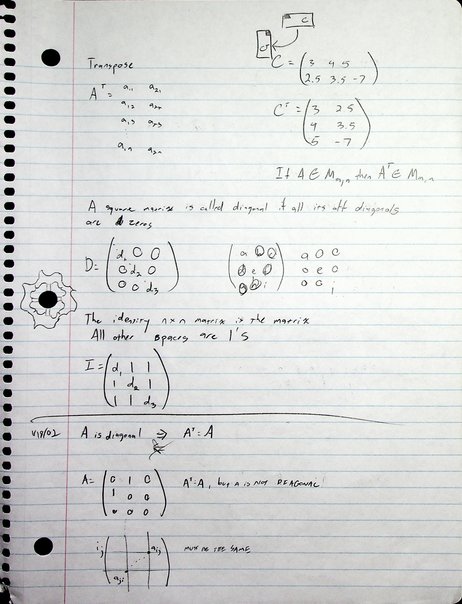 C
Transpose
C = (3 4 5
2.5 3.5 -7)
Aᵀ = a₁₁ a₂₁
a₁₂ a₂₂
a₁₃ a₂₃
a₁ₙ a₂ₙ
Cᵀ = (3 2.5
4 3.5
5 -7)
If A ∈ Mₘ,ₙ then Aᵀ ∈ Mₙ,ₘ
A square matrix is called diagonal if all its off diagonals
are zeros
D = (d₁ 0 0
0 d₂ 0
0 0 d₃)
(a 0 0
0 e 0
0 0 i)
a 0 0
0 e 0
0 0 i
The identity n×n matrix is the matrix
All other spaces are 1's
I = (d₁ 1 1
1 d₂ 1
1 1 d₃)
A is diagonal ⇒ Aᵀ = A
A = (0 1 0
1 0 0
0 0 0)
Aᵀ = A, but A is NOT DIAGONAL
aᵢⱼ
aⱼᵢ
MUST BE THE SAME